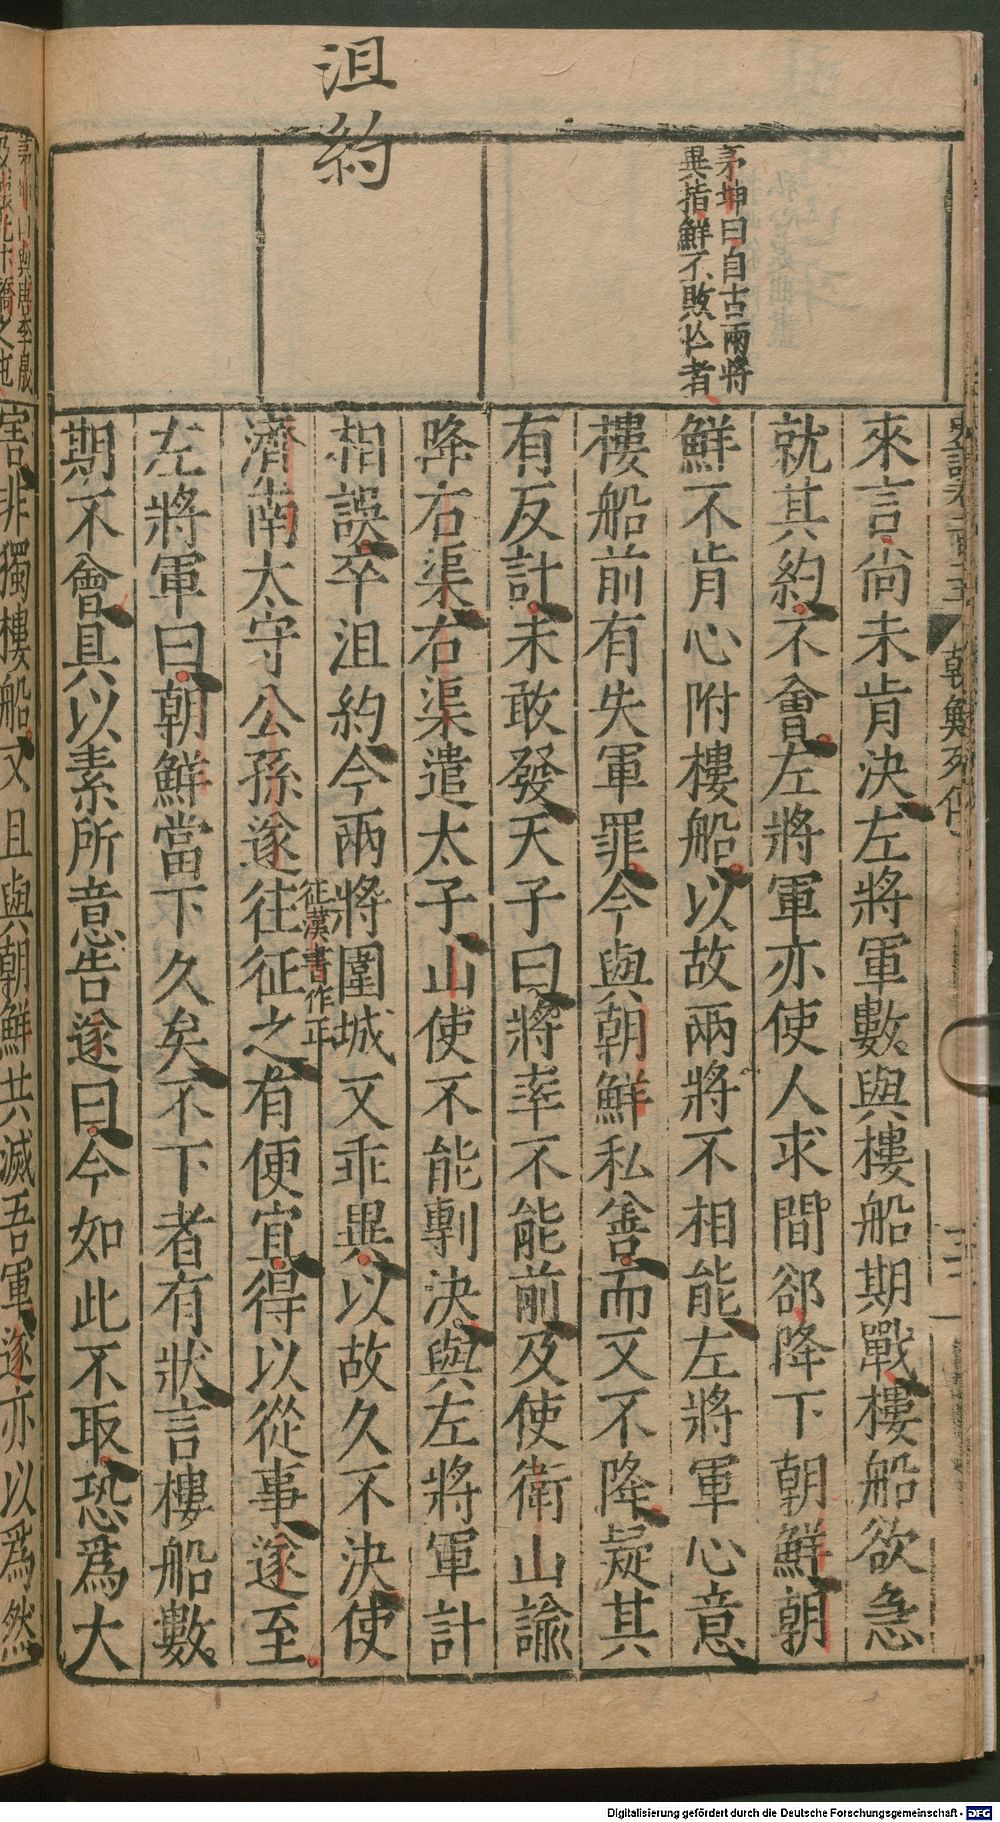 沮約
茅坤曰自古兩將
異指鮮不敗亡者
來言尚未肯決左將軍數與樓船期戰樓船欲急
就其約不會左將軍亦使人求間郤降下朝鮮朝
鮮不肯心附樓船以故兩將不相能左將軍心意
樓船前有失軍罪今與朝鮮私善而又不降疑其
有反計未敢發天子曰將率不能前及使衛山諭
降右渠右渠遣太子山使不能剸決與左將軍計
相誤卒沮約今兩將圍城又乖異以故久不決使
濟南太守公孫遂往征之有便宜得以從事遂至
征漢書作正
左將軍曰朝鮮當下久矣不下者有狀言樓船數
期不會具以素所意告遂曰今如此不取恐爲大
害非獨樓船又且與朝鮮共滅吾軍遂亦以爲然
朝鮮列傳
Digitalisierung gefördert durch die Deutsche Forschungsgemeinschaft - DFG